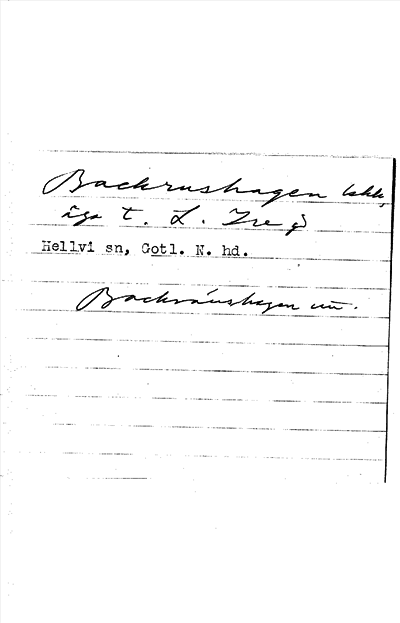 Backrushagen
äga t. L. Ire
Hellvi sn, Gotl. N. hd.
Backrúushagen